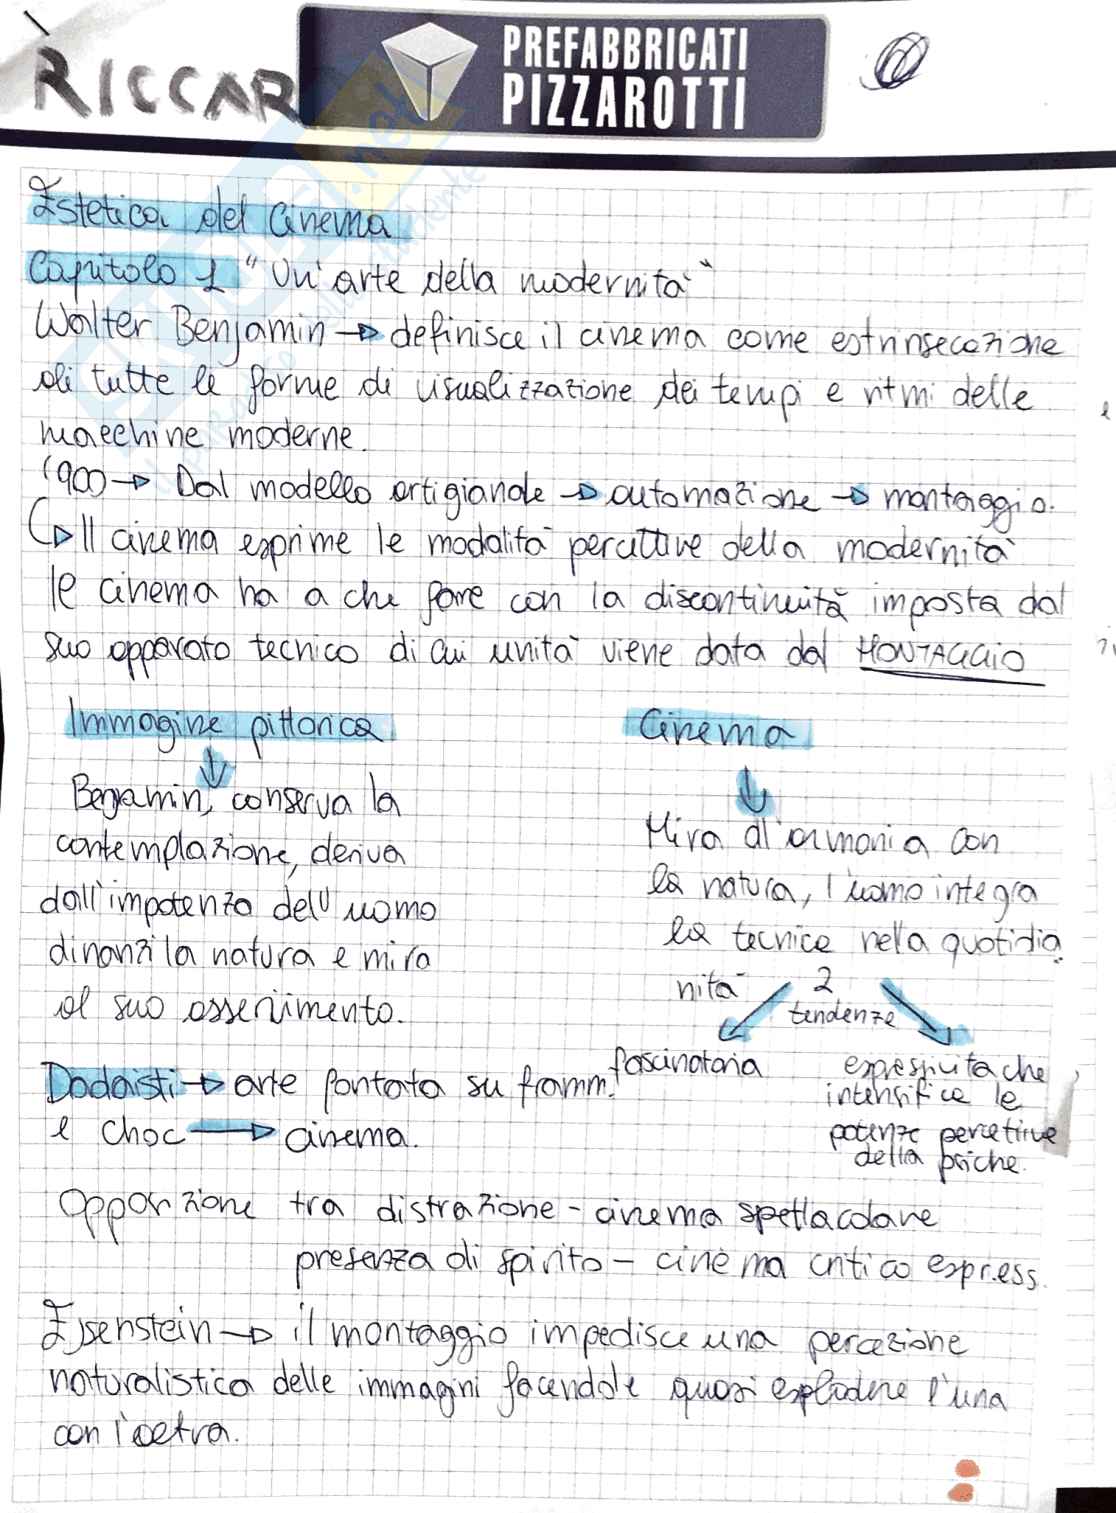 RICCAR
PREFABBRICATI
PIZZAROTTI
Estetica del Cinema
Capitolo 1 "Un'arte della modernità"
Walter Benjamin → definisce il cinema come estrinsecazione
di tutte le forme di visualizzazione dei tempi e ritmi delle
macchine moderne.
'900 → Dal modello artigianale → automazione → montaggio.
↳ Il cinema esprime le modalità percettive della modernità
Il cinema ha a che fare con la discontinuità imposta dal
suo apparato tecnico di cui unità viene data dal MONTAGGIO
Immagine pittorica
↓
Benjamin, conserva la
contemplazione, deriva
dall'impotenza dell'uomo
dinanzi la natura e mira
al suo asservimento.
Cinema
↓
Mira all'armonia con
la natura, l'uomo integra
la tecnica nella quotidia
nità 2
tendenze
fascinatoria
espressività che
intensifica le
potenze percettive
della psiche.
Dadaisti → arte fontata su framm.
e choc → cinema.
Opposizione tra distrazione - cinema spettacolare
presenza di spirito - cinema critico express.
Ejsenstein → il montaggio impedisce una percezione
naturalistica delle immagini facendole quasi esplodere l'una
con l'altra.